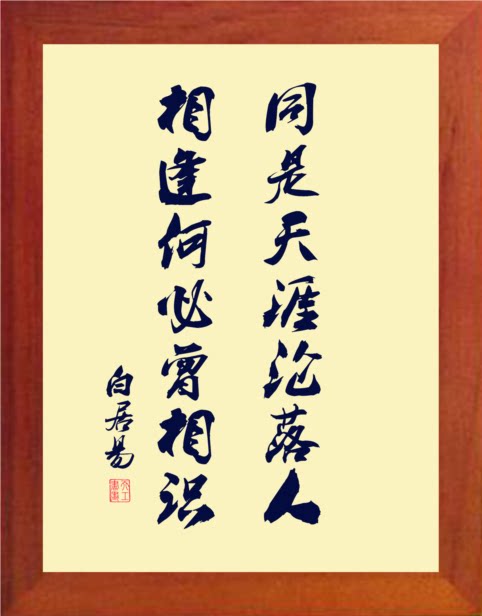 同是天涯沦落人
相逢何必曾相识
白居易